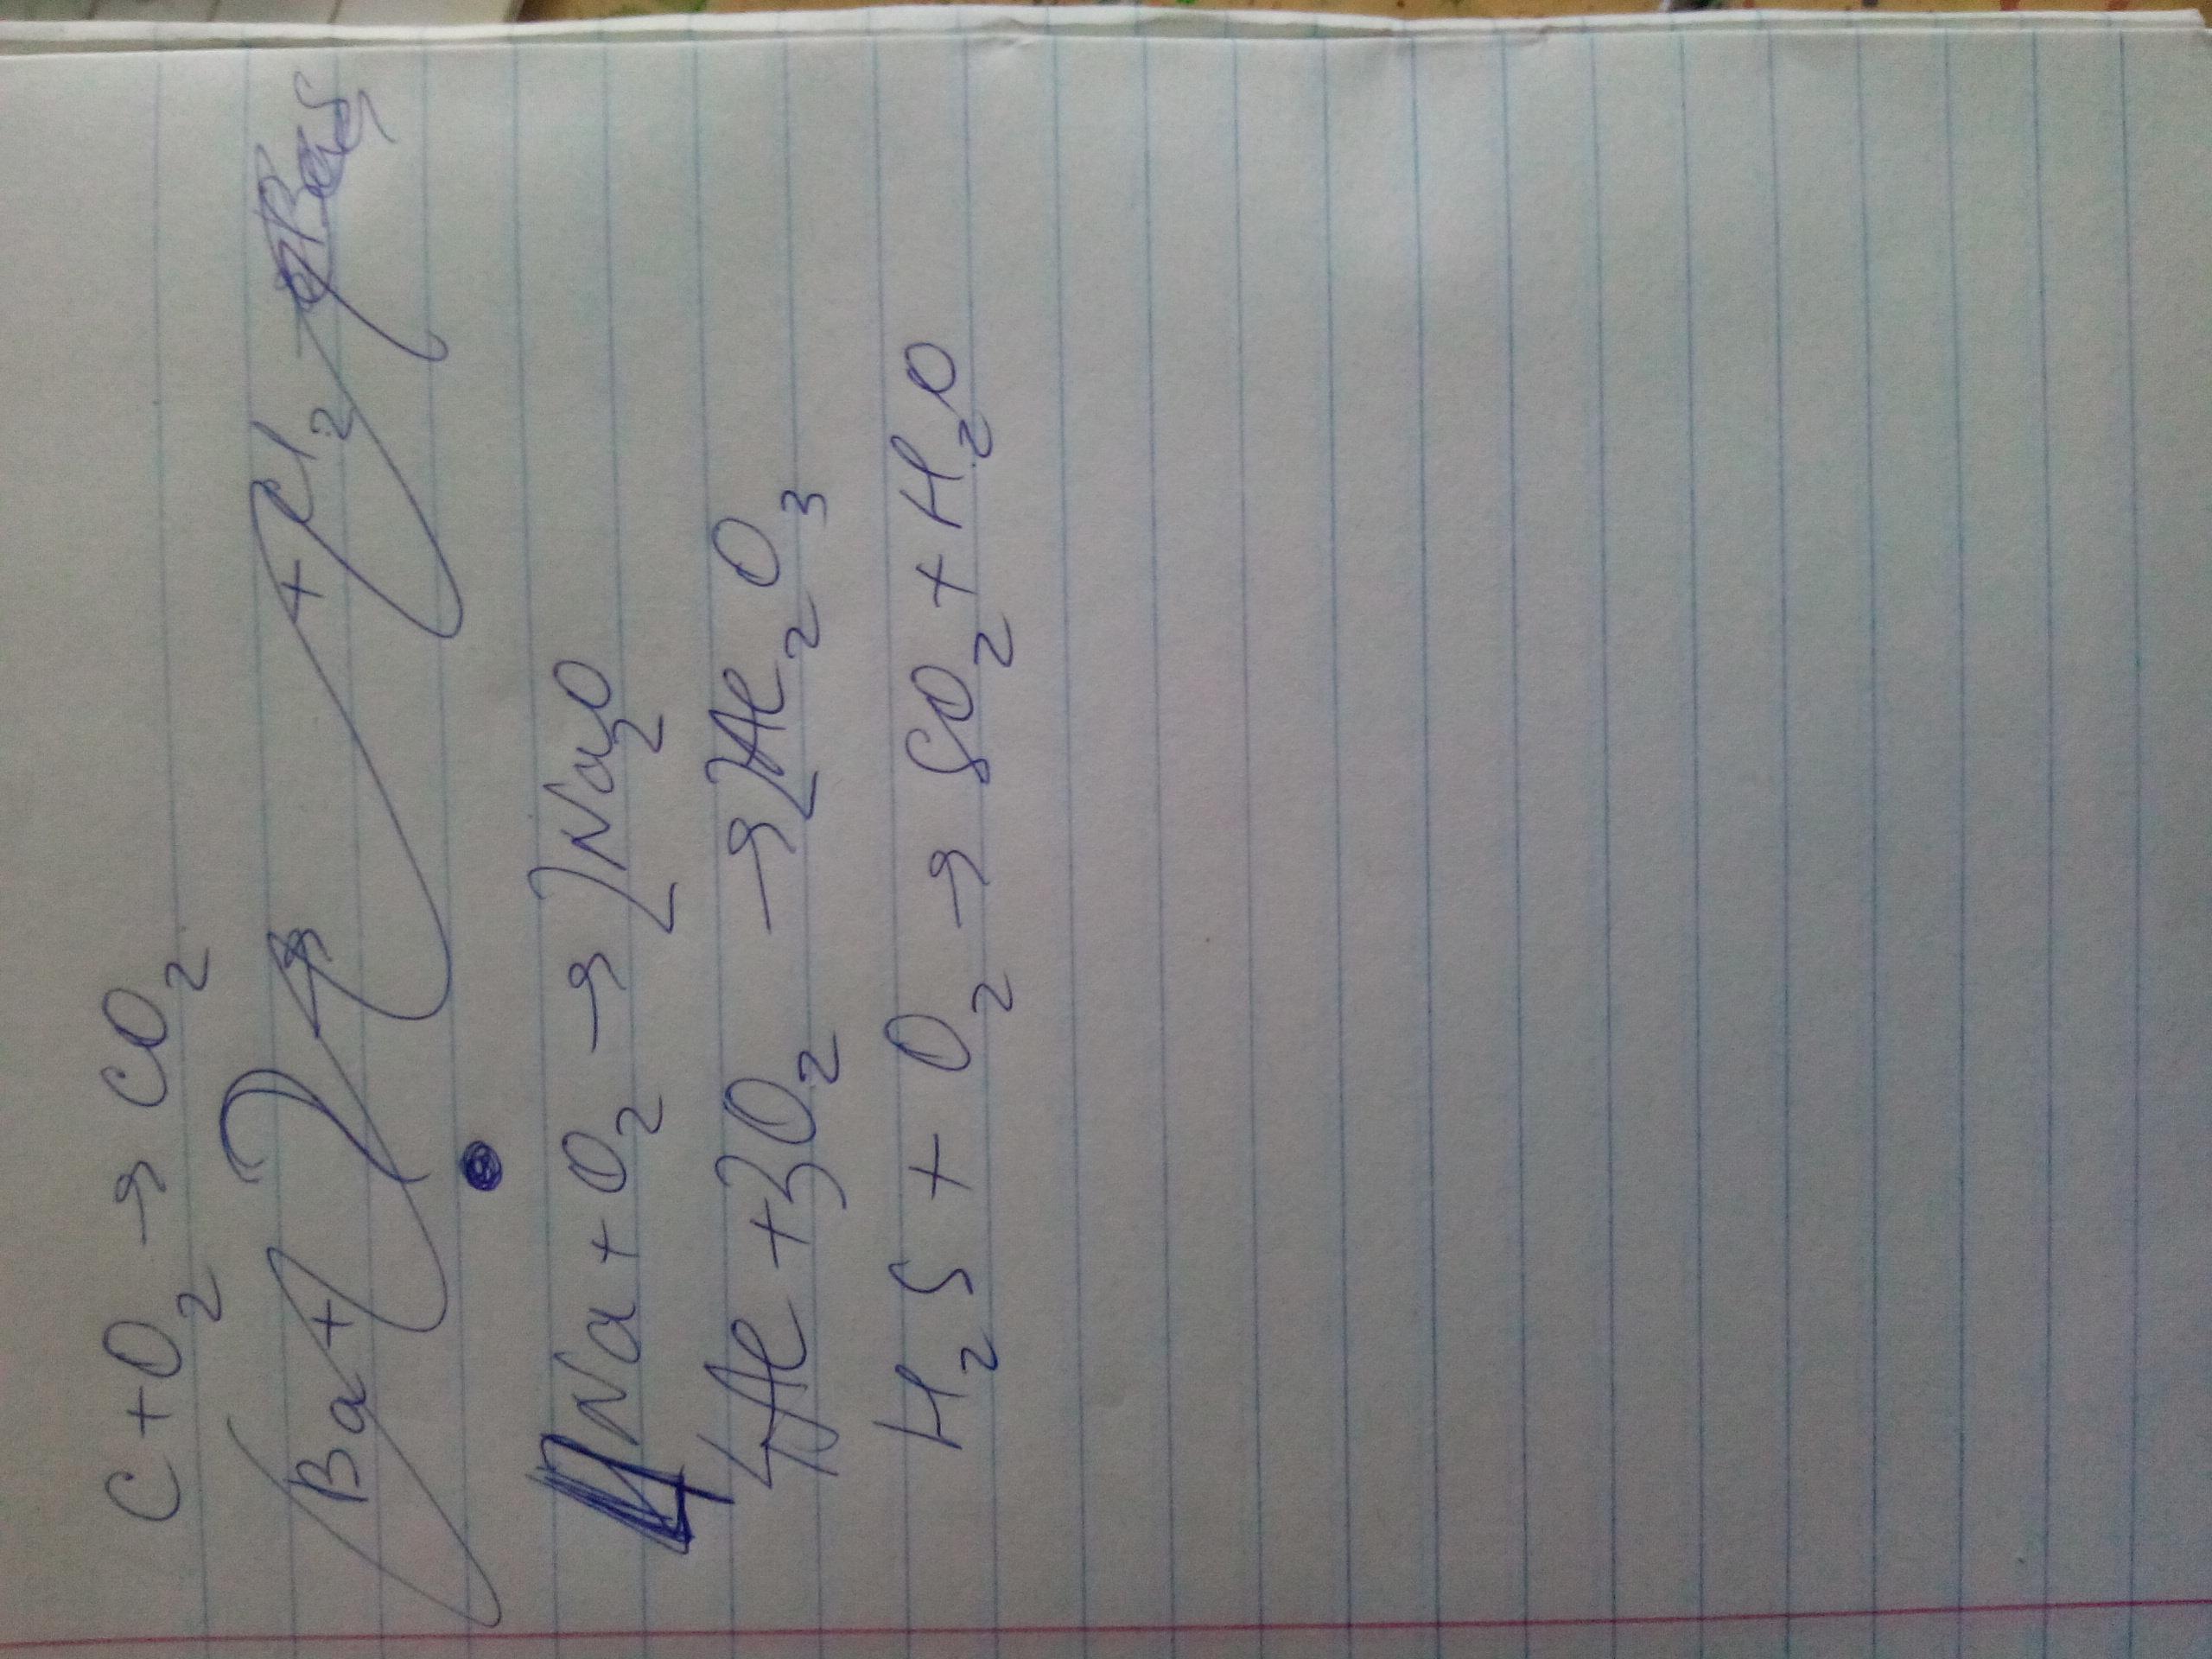 C + O₂ → CO₂
Ba + + Cl₂
4Na + O₂ → 2Na₂O
4Al + 3O₂ → 2Al₂O₃
H₂S + O₂ → SO₂ + H₂O